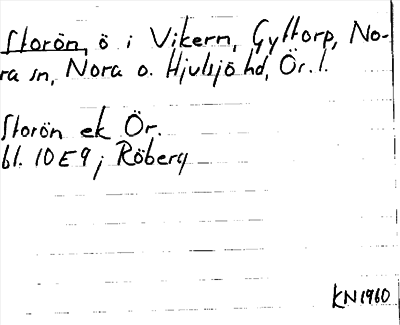 Storön, ö i Vikern, Gyttorp, No-
ra sn, Nora o. Hjulsjö hd, Ör. l.
Storön ek Ör.
bl. 10 E 9 j Röberg
KN 1960